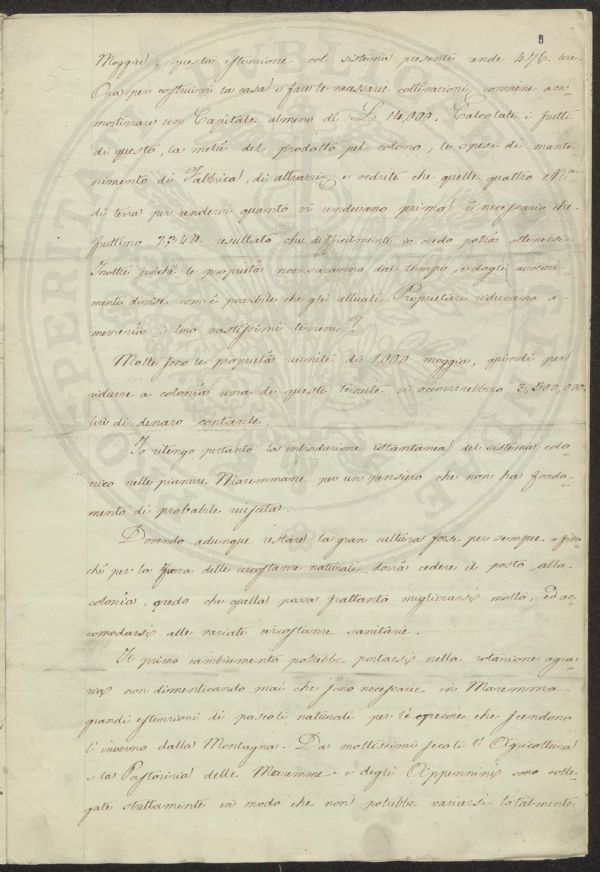 5
Moggia, questa estensione col sistema presente rende 476. lire
Ora per costruirvi la casa e fare le necessarie coltivazioni, conviene am-
mortizzare un Capitale almeno di £ 14,000. Calcolate i frutti
di questo, la metà del prodotto pel colono, le spese di mante-
nimento di Fabbrica, di attrazzi, e vedrete che quelle quattro Mª
di terra per rendervi quanto vi rendevano prima è necessario che
fruttino 2340. resultato che difficilmente io credo potrà ottenersi.
Inoltre finchè le proprietà non saranno dal tempo, e dagli avveni-
menti divise com'è possibile che gli attuali Proprietari riducano a
mezzeria i loro vastissimi terreni?
Molte sono le proprietà riunite di 1000 moggia, quindi per
ridurre a colonìa una di queste tenute vi occorrerebbero 3,500,000.
lire di denaro contante.
Io ritengo pertanto la introduzione istantanea del sistema colo-
nico nelle pianure Maremmane per un pensiero che non ha fonda-
mento di probabile riuscita.
Dovendo adunque restare la gran cultura forse per sempre o fin-
chè per la forza delle circostanze naturali dovrà cedere il posto alla
colonìa, credo che quella possa frattanto migliorarsi molto, ed ac-
comodarsi alle variate circostanze sanitarie.
Il primo cambiamento potrebbe portarsi nella rotazione agra-
ria, non dimenticando mai che sono necessarie in Maremma
grandi estensioni di pascoli naturali per le pecore che scendono
l'inverno dalla Montagna. Da moltissimi secoli l'Agricoltura
e la Pastorizia delle Maremme e degli Appennini sono colle-
gate strettamente in modo che non potrebbe variarsi totalmente